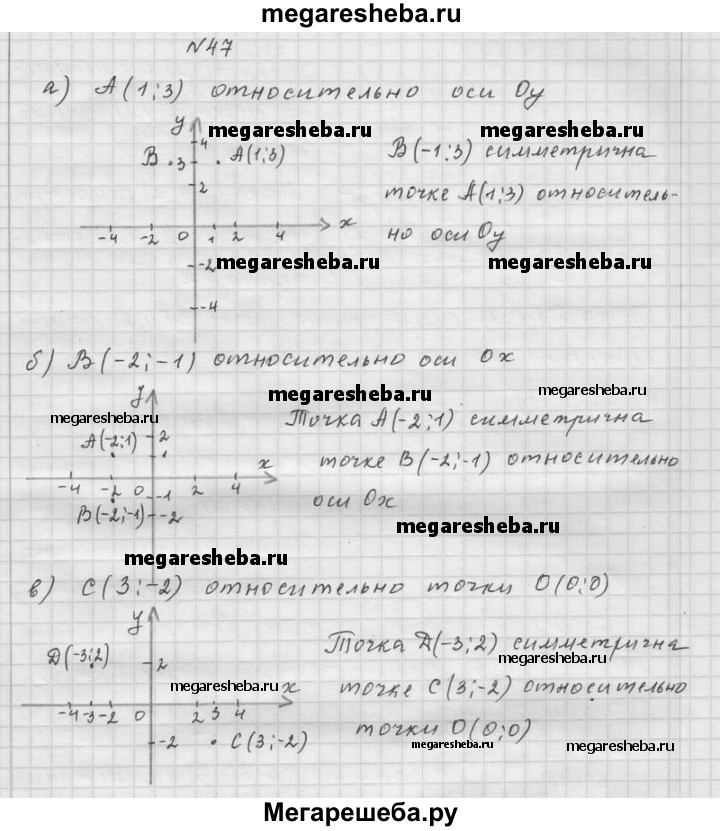 megaresheba.ru
№47
а) А(1;3) относительно оси Оу
у
megaresheba.ru megaresheba.ru
4
В 3 А(1;3) В(-1;3) симметрична
2 точке А(1;3) относитель-
-4 -2 0 1 2 4 х но оси Оу
-2
megaresheba.ru megaresheba.ru
-4
б) В(-2;-1) относительно оси Ох
у megaresheba.ru megaresheba.ru
megaresheba.ru Точка А(-2;1) симметрична
А(-2;1) 2
1 х точке В(-2;-1) относительно
-4 -2 0 -1 2 4 оси Ох
В(-2;-1) -2 megaresheba.ru
megaresheba.ru
в) С(3;-2) относительно точки О(0;0)
у
D(-3;2) 2 Точка D(-3;2) симметрична
megaresheba.ru
megaresheba.ru х точке С(3;-2) относительно
-4 -3 -2 0 2 3 4
-2 С(3;-2) точки О(0;0)
megaresheba.ru megaresheba.ru
Мегарешеба.ру